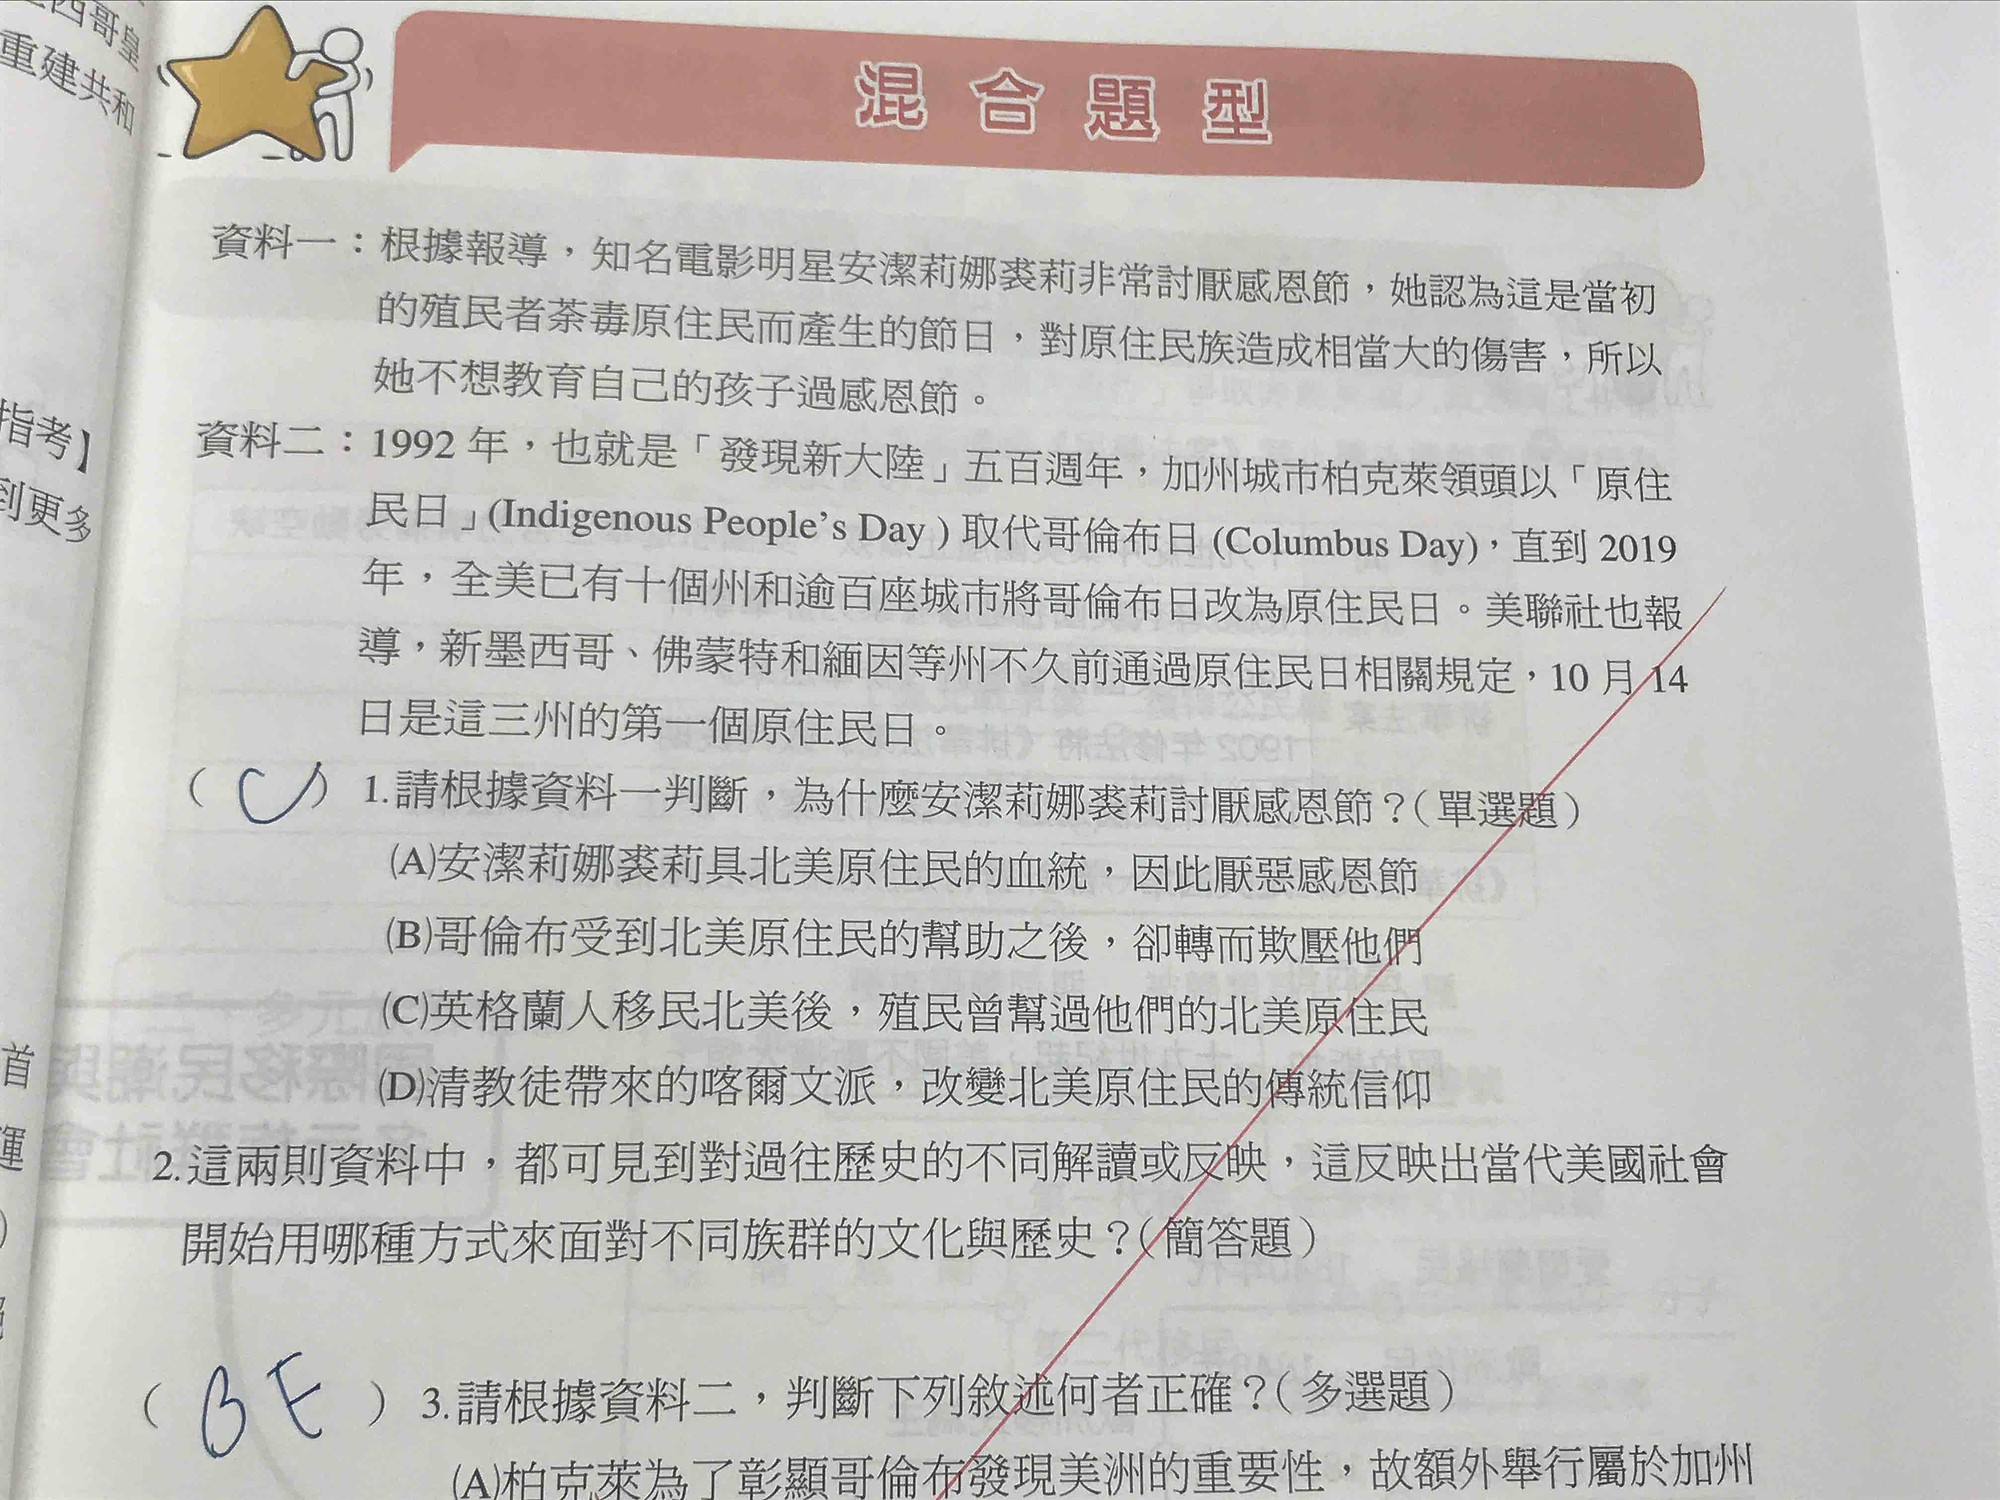 西哥皇
重建共和
指考】
到更多
首
運
混合題型
資料一：根據報導，知名電影明星安潔莉娜裘莉非常討厭感恩節，她認為這是當初
的殖民者荼毒原住民而產生的節日，對原住民族造成相當大的傷害，所以
她不想教育自己的孩子過感恩節。
資料二：1992 年，也就是「發現新大陸」五百週年，加州城市柏克萊領頭以「原住
民日」(Indigenous People's Day ) 取代哥倫布日 (Columbus Day)，直到 2019
年，全美已有十個州和逾百座城市將哥倫布日改為原住民日。美聯社也報
導，新墨西哥、佛蒙特和緬因等州不久前通過原住民日相關規定，10 月 14
日是這三州的第一個原住民日。
（ C ）1.請根據資料一判斷，為什麼安潔莉娜裘莉討厭感恩節？（單選題）
(A)安潔莉娜裘莉具北美原住民的血統，因此厭惡感恩節
(B)哥倫布受到北美原住民的幫助之後，卻轉而欺壓他們
(C)英格蘭人移民北美後，殖民曾幫過他們的北美原住民
(D)清教徒帶來的喀爾文派，改變北美原住民的傳統信仰
2.這兩則資料中，都可見到對過往歷史的不同解讀或反映，這反映出當代美國社會
開始用哪種方式來面對不同族群的文化與歷史？（簡答題）
（ B E ）3.請根據資料二，判斷下列敘述何者正確？（多選題）
(A)柏克萊為了彰顯哥倫布發現美洲的重要性，故額外舉行屬於加州